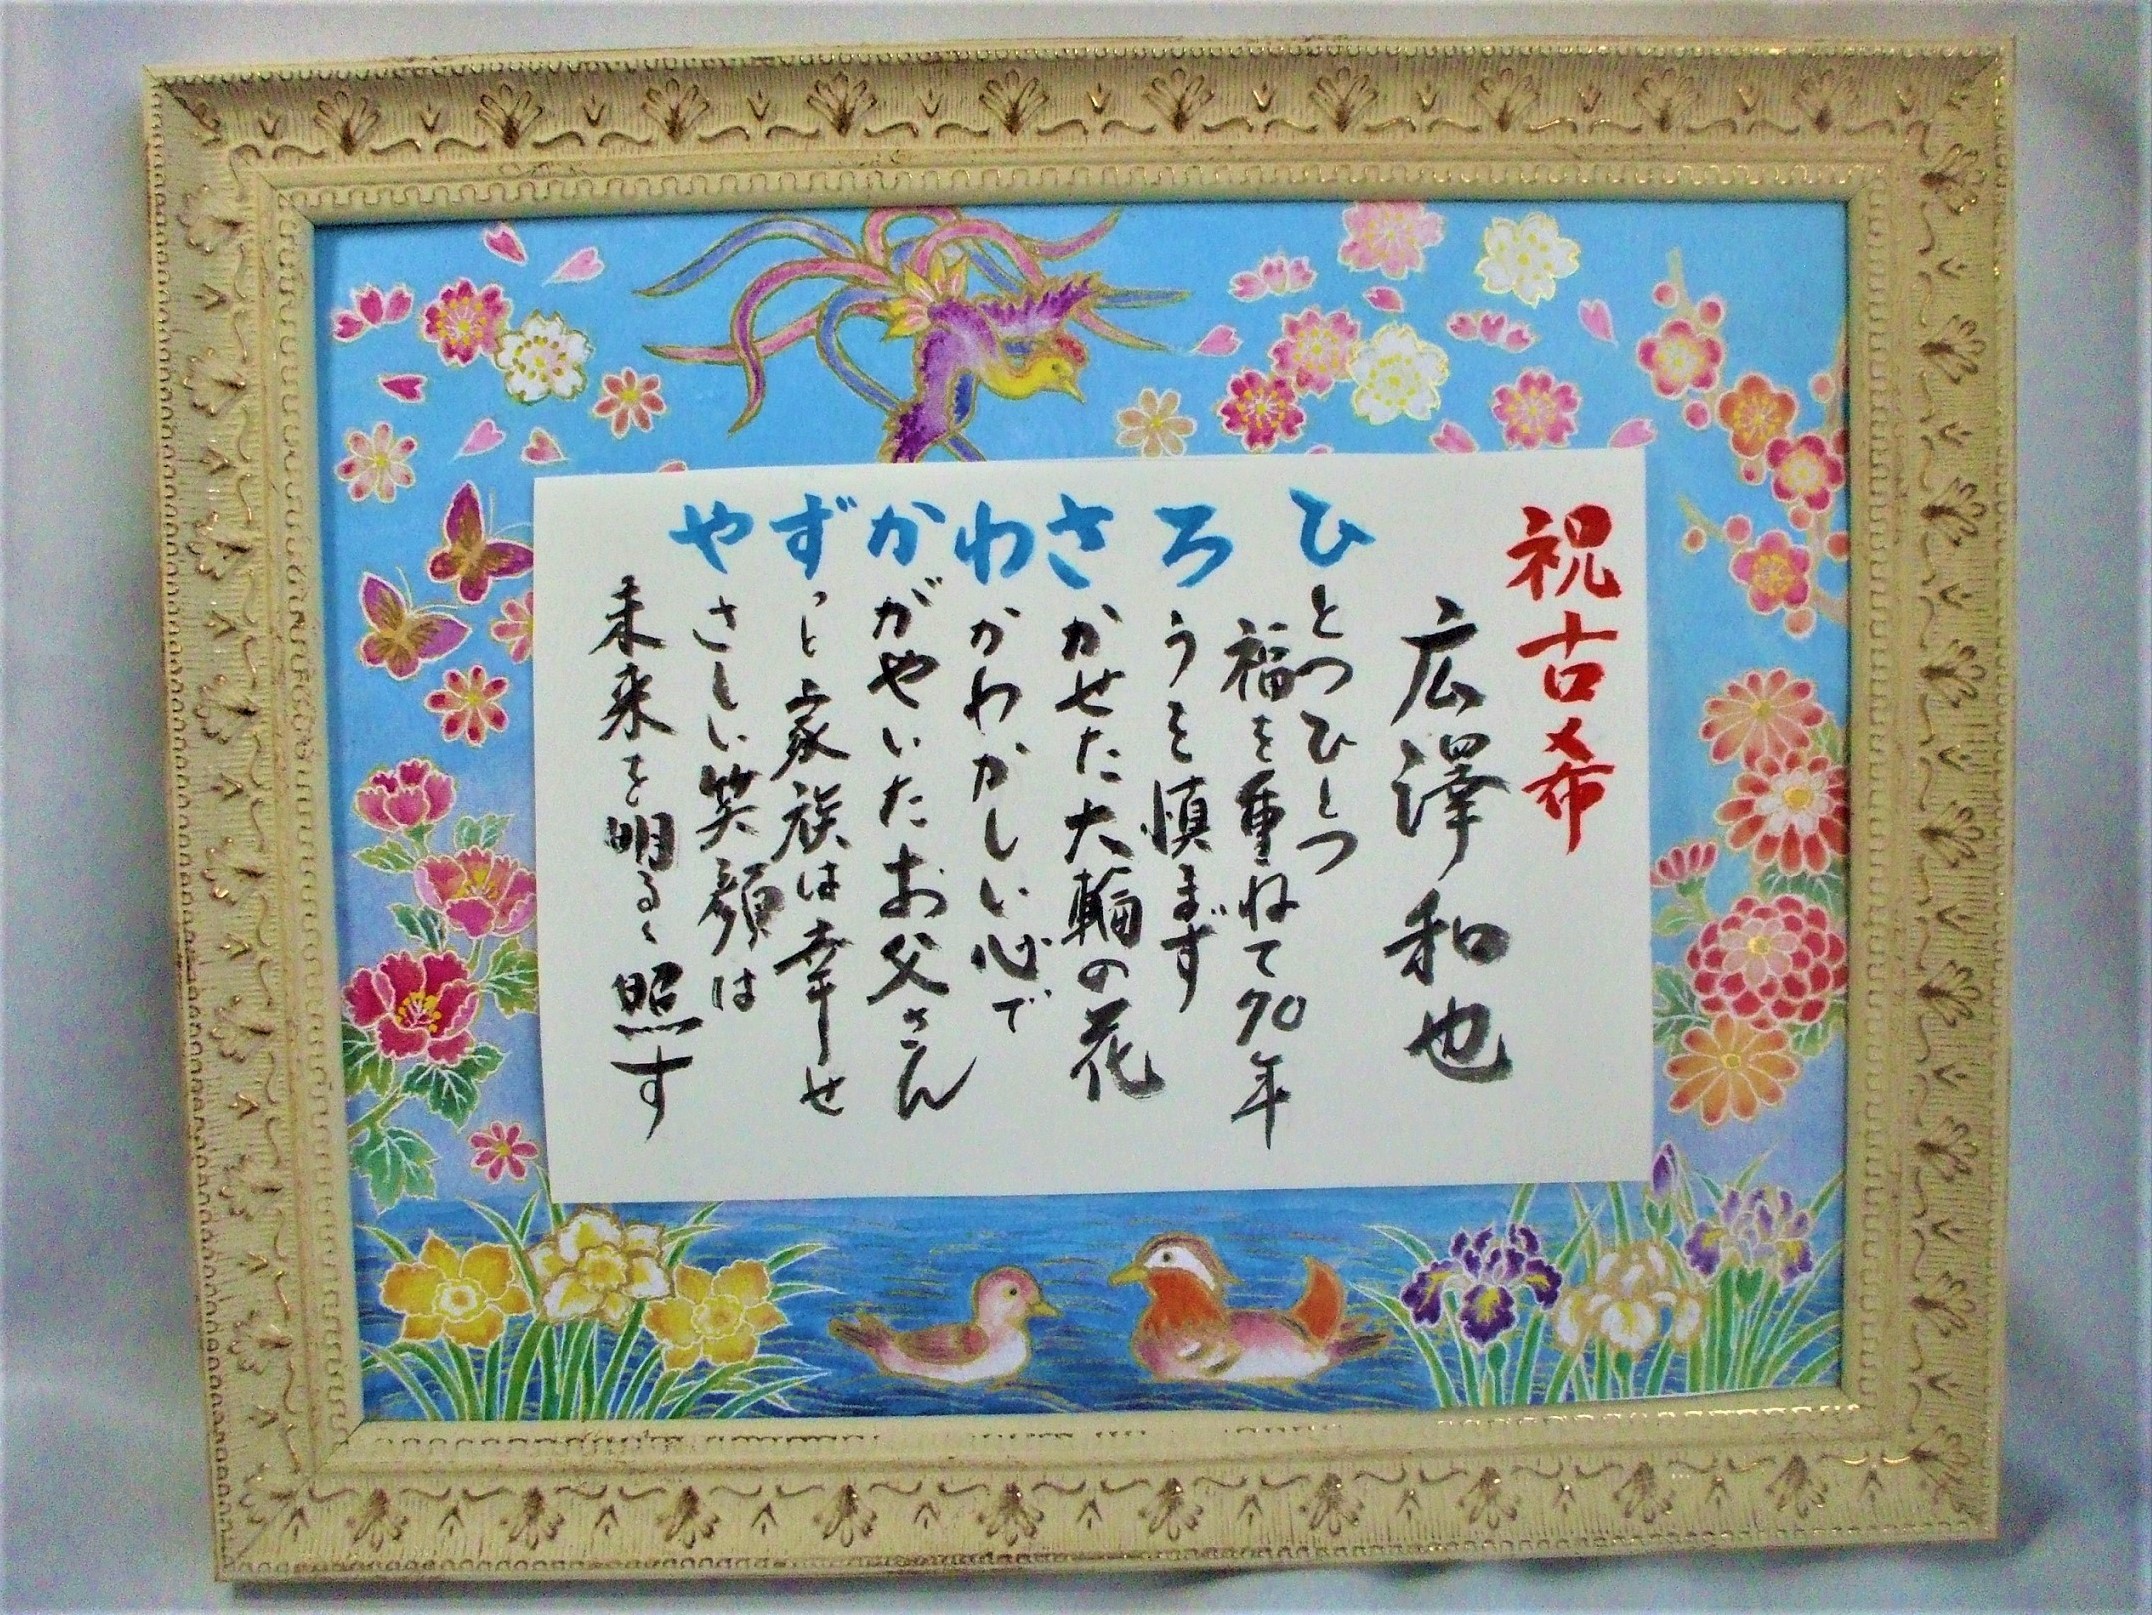 祝古希
広澤和也
ひとつひとつ
福を重ねて70年
ろうを慎まず
さかせた大輪の花
わかわかしい心で
かがやいたお父さん
ずっと家族は幸せ
やさしい笑顔は
未来を明るく照す